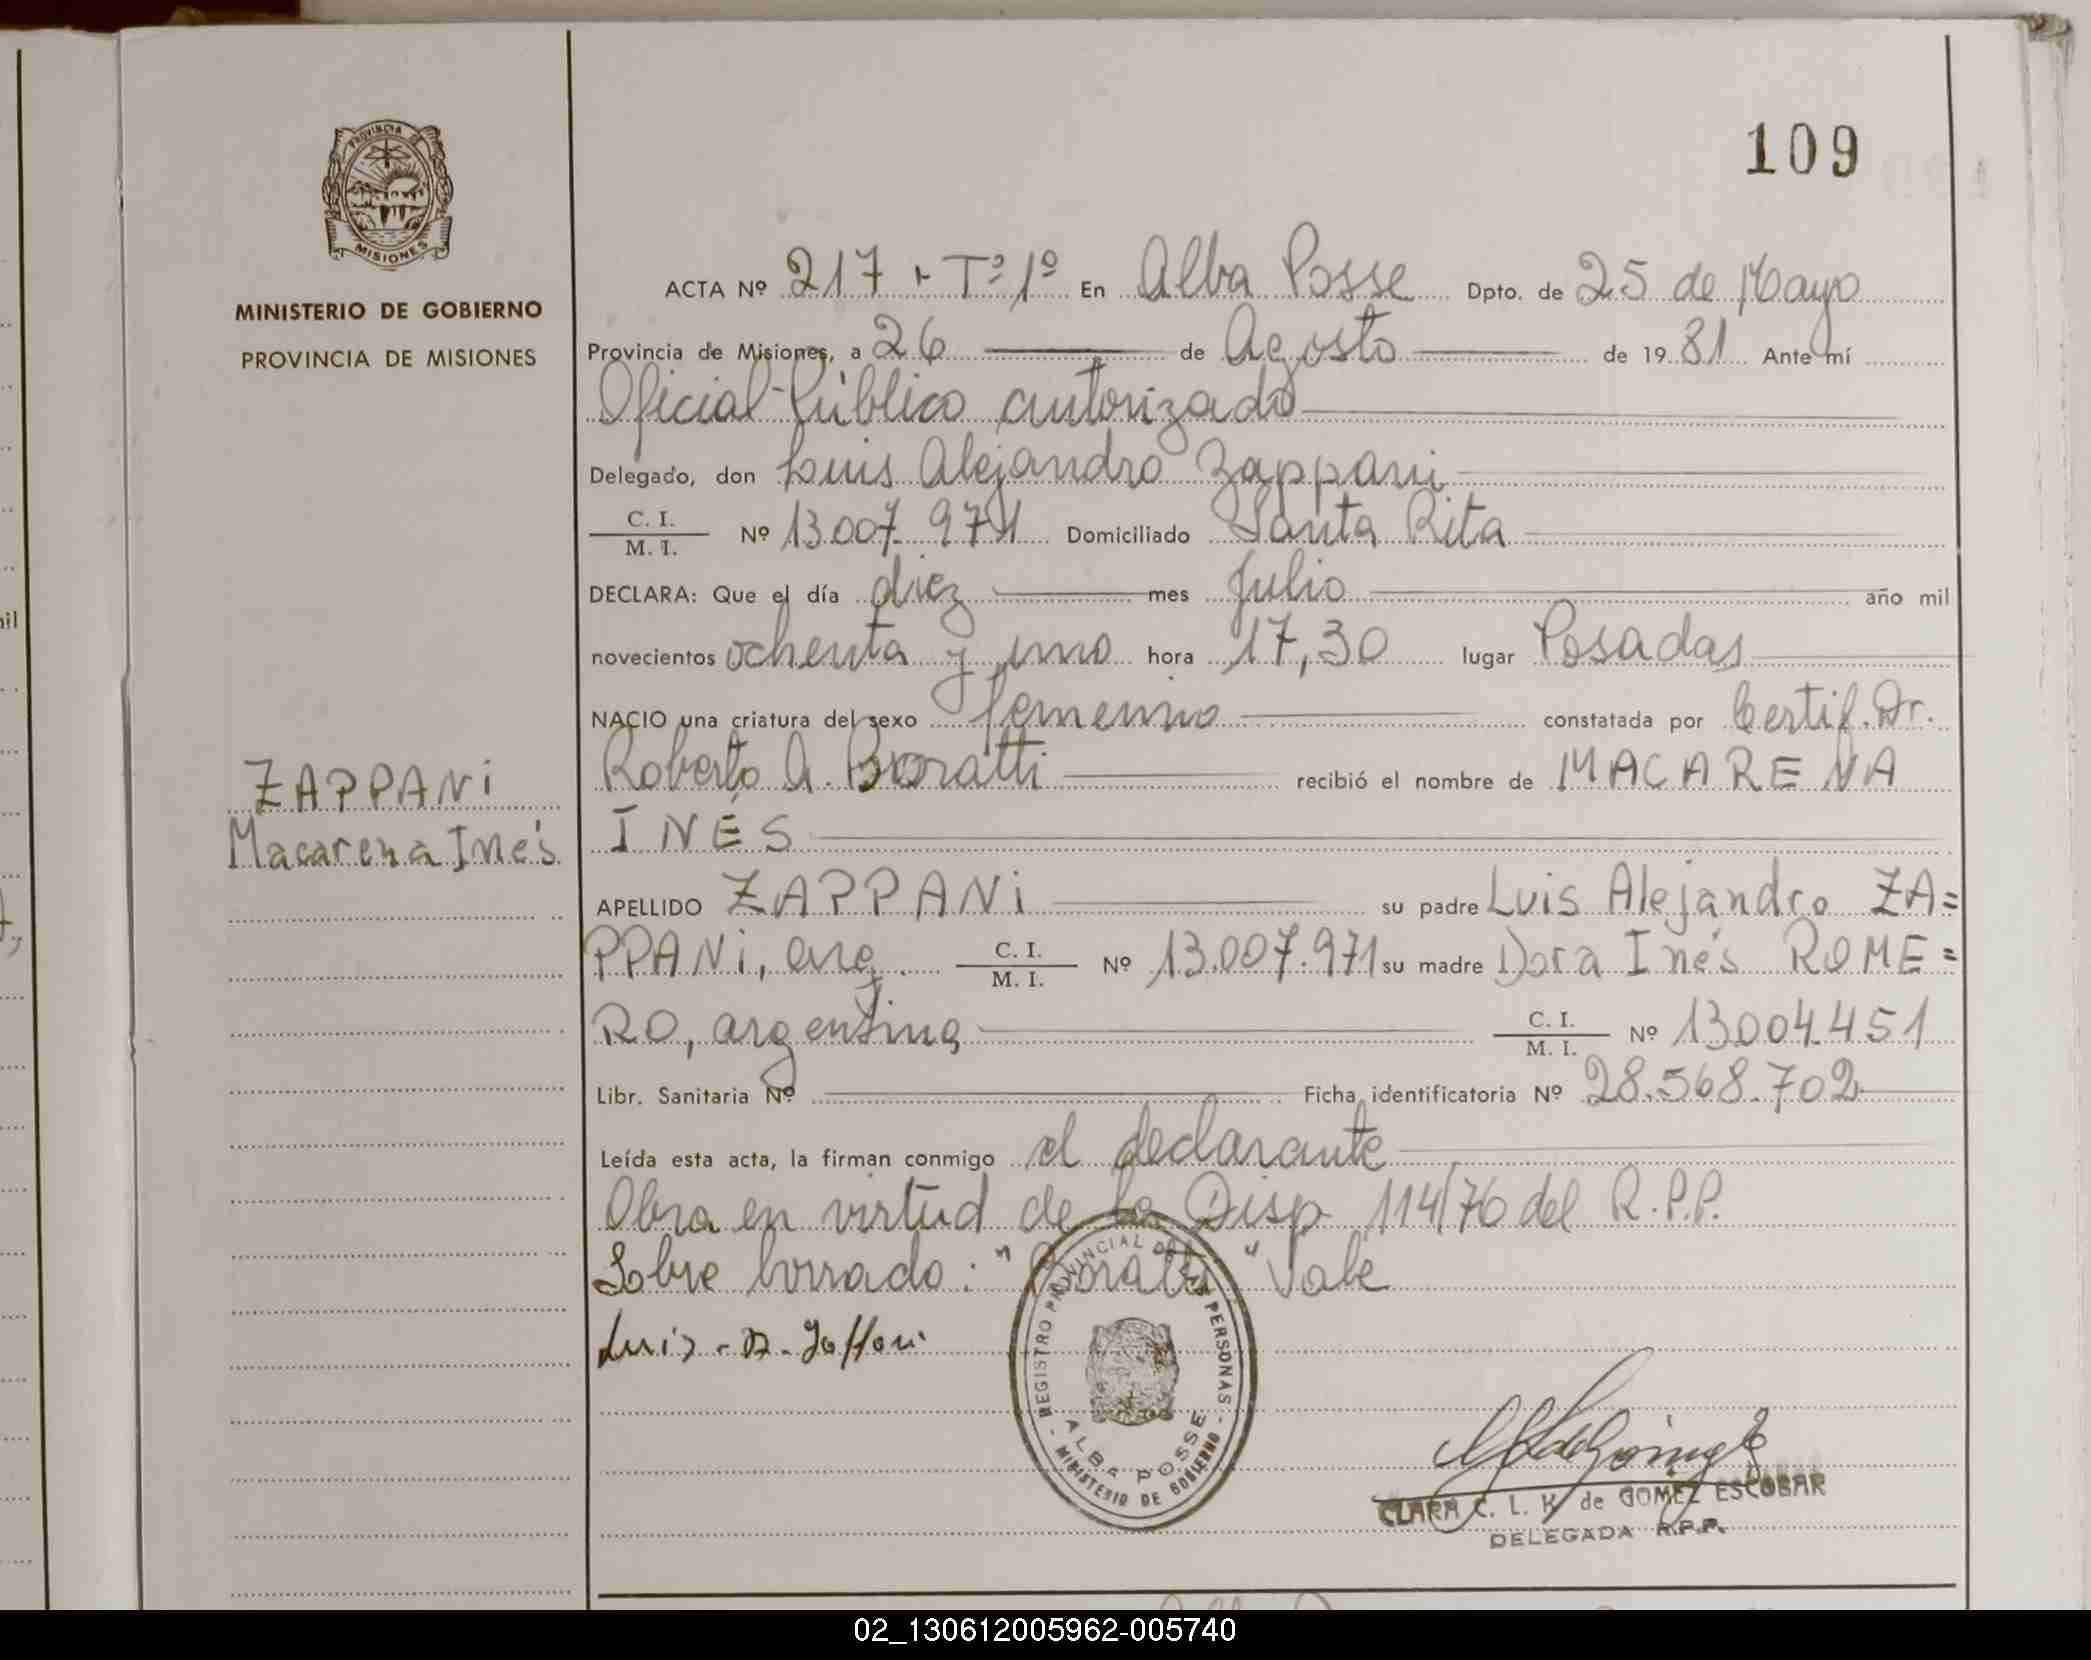 109
PROVINCIA DE
MISIONES
MINISTERIO DE GOBIERNO
PROVINCIA DE MISIONES
ZAPPANi
Macarena Inés
ACTA Nº 217 - Tº 1º En Alba Posse Dpto. de 25 de Mayo
Provincia de Misiones, a 26 de Agosto de 1981 Ante mí
Oficial Público autorizado
Delegado, don Luis Alejandro Zappani
C. I. / M. I. Nº 13.007.971 Domiciliado Santa Rita
DECLARA: Que el día diez mes Julio año mil
novecientos ochenta y uno hora 17,30 lugar Posadas
NACIO una criatura del sexo femenino constatada por Certif. Dr.
Roberto A. Boratti recibió el nombre de MACARENA
INÉS
APELLIDO ZAPPANi su padre Luis Alejandro ZA=
PPANi, arg. C. I. / M. I. Nº 13.007.971 su madre Dora Inés ROME=
RO, argentina C. I. / M. I. Nº 13.004.451
Libr. Sanitaria Nº Ficha identificatoria Nº 28.568.702
Leída esta acta, la firman conmigo el declarante
Obra en virtud de la Disp. 114/76 del R.P.P.
Sobre borrado: "Boratti" Vale
REGISTRO PROVINCIAL DE LAS PERSONAS
ALBA POSSE
- MINISTERIO DE GOBIERNO -
CLARA C. L. K. de GOMEZ ESCOBAR
DELEGADA R.P.P.
02_130612005962-005740